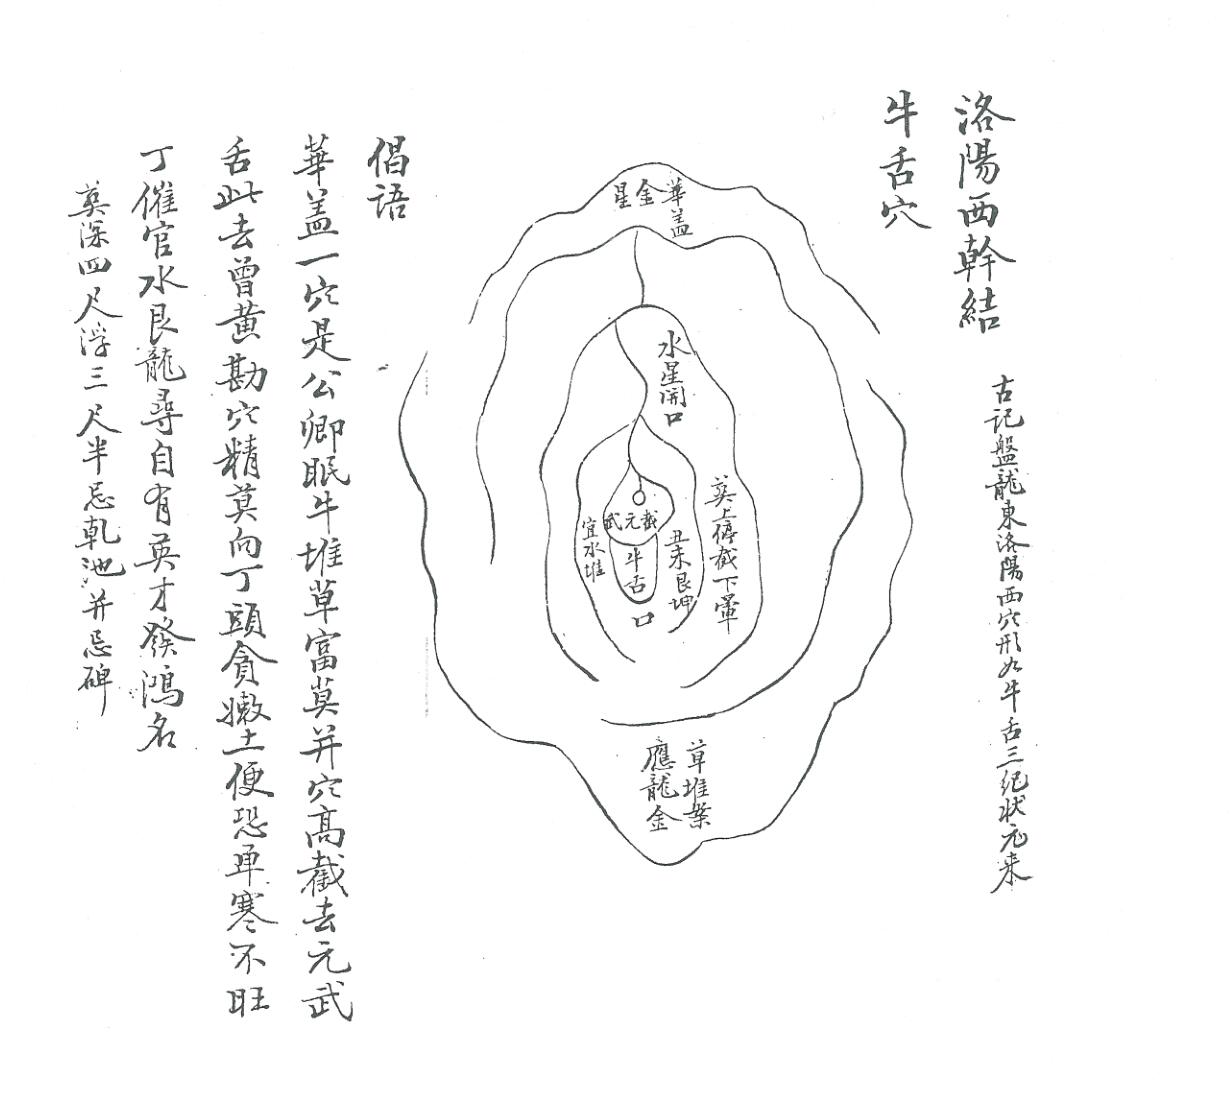 洛陽西幹結
古記盤龍東洛陽西穴形如牛舌三紀狀元来
牛舌穴
華蓋
金星
水星開口
葬上停截下暈
丑未艮坤
截元武
宜水堆
牛舌
口
草堆葉
應龍金
倡語
華盖一穴是公卿眠牛堆草富莫并穴高截去元武
舌此去曾黄勘穴精莫向丁頭貪嫩土便恐弔寒不旺
丁催官水艮龍尋自有英才發鴻名
葬深四尺浮三尺半忌乾池并忌碑